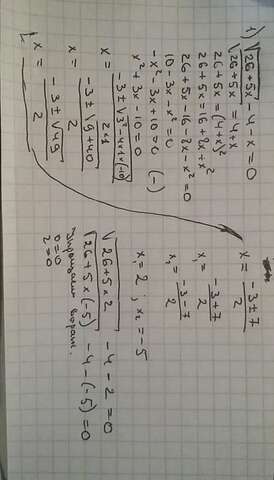 1) √26+5x - 4 - x = 0
√26+5x = 4+x
26+5x = (4+x)²
26+5x = 16+8x+x²
26+5x-16-8x-x² = 0
10-3x-x² = 0
-x²-3x+10 = 0 (-)
x²+3x-10 = 0
x = -3±√3²-4×1×(-10) / 2×1
x = -3±√9+40 / 2
x = -3±√49 / 2
x = -3±7 / 2
x₁ = -3+7 / 2
x₁ = -3-7 / 2
x₁ = 2 ; x₂ = -5
√26+5×2 - 4 - 2 = 0
√26+5×(-5) - 4 - (-5) = 0
0 = 0
2 = 0